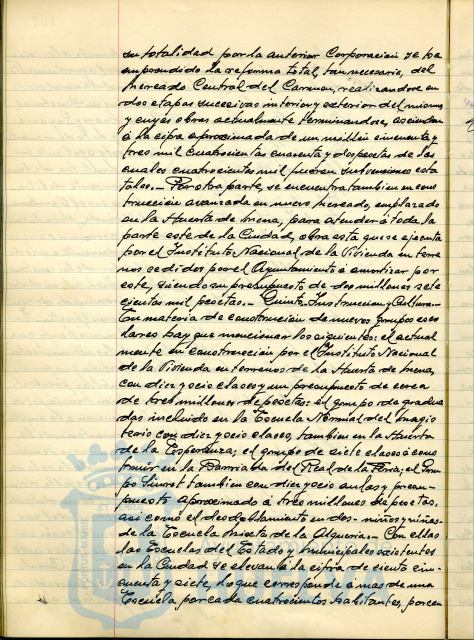 su totalidad por la anterior Corporación se ha
emprendido la reforma total, tan necesaria, del
Mercado Central del Carmen, realizandose en
dos etapas sucesivas interior y exterior del mismo
y cuyas obras actualmente terminandose, ascienden
a la cifra aproximada de un millón cincuenta y
tres mil cuatrocientas cuarenta y dos pesetas de las
cuales cuatrocientas mil fueron subvenciones esta
tales.- Por otra parte, se encuentra tambien en cons
trucción avanzada un nuevo mercado, emplazado
en la Huerta de Mena, para atender a toda la
parte este de la Ciudad, obra esta que se ejecuta
por el Instituto Nacional de la Vivienda en terre
nos cedidos por el Ayuntamiento a amortizar por
este, siendo su presupuesto de dos millones sete
cientas mil pesetas.- Quinto. Instruccion y Cultura.-
En materia de construcción de nuevos grupos esco
lares hay que mencionar los siguientes: el actual
mente en construcción por el Instituto Nacional
de la Vivienda en terrenos de la Huerta de Mena,
con diez y ocio clases y un presupuesto de cerca
de tres millones de pesetas: el grupo de gradua
das incluido en la Escuela Normal del Magis
terio con diez y ocio clases, tambien en la Huerta
de la Esperanza; el grupo de siete clases a cons
truir en la Barriada del Real de la Feria; el Gru
po Sunot tambien con diez y ocio aulas y presu-
puesto aproximado a tres millones de pesetas,
asi como el desdoblamiento en dos - niños y niñas-
de la Escuela mixta de la Alqueria.- Con ellas
las Escuelas del Estado y municipales existentes
en la Ciudad se elevan a la cifra de ciento cin-
cuenta y siete, lo que corresponde a mas de una
Escuela por cada cuatrocientos habitantes, porcen